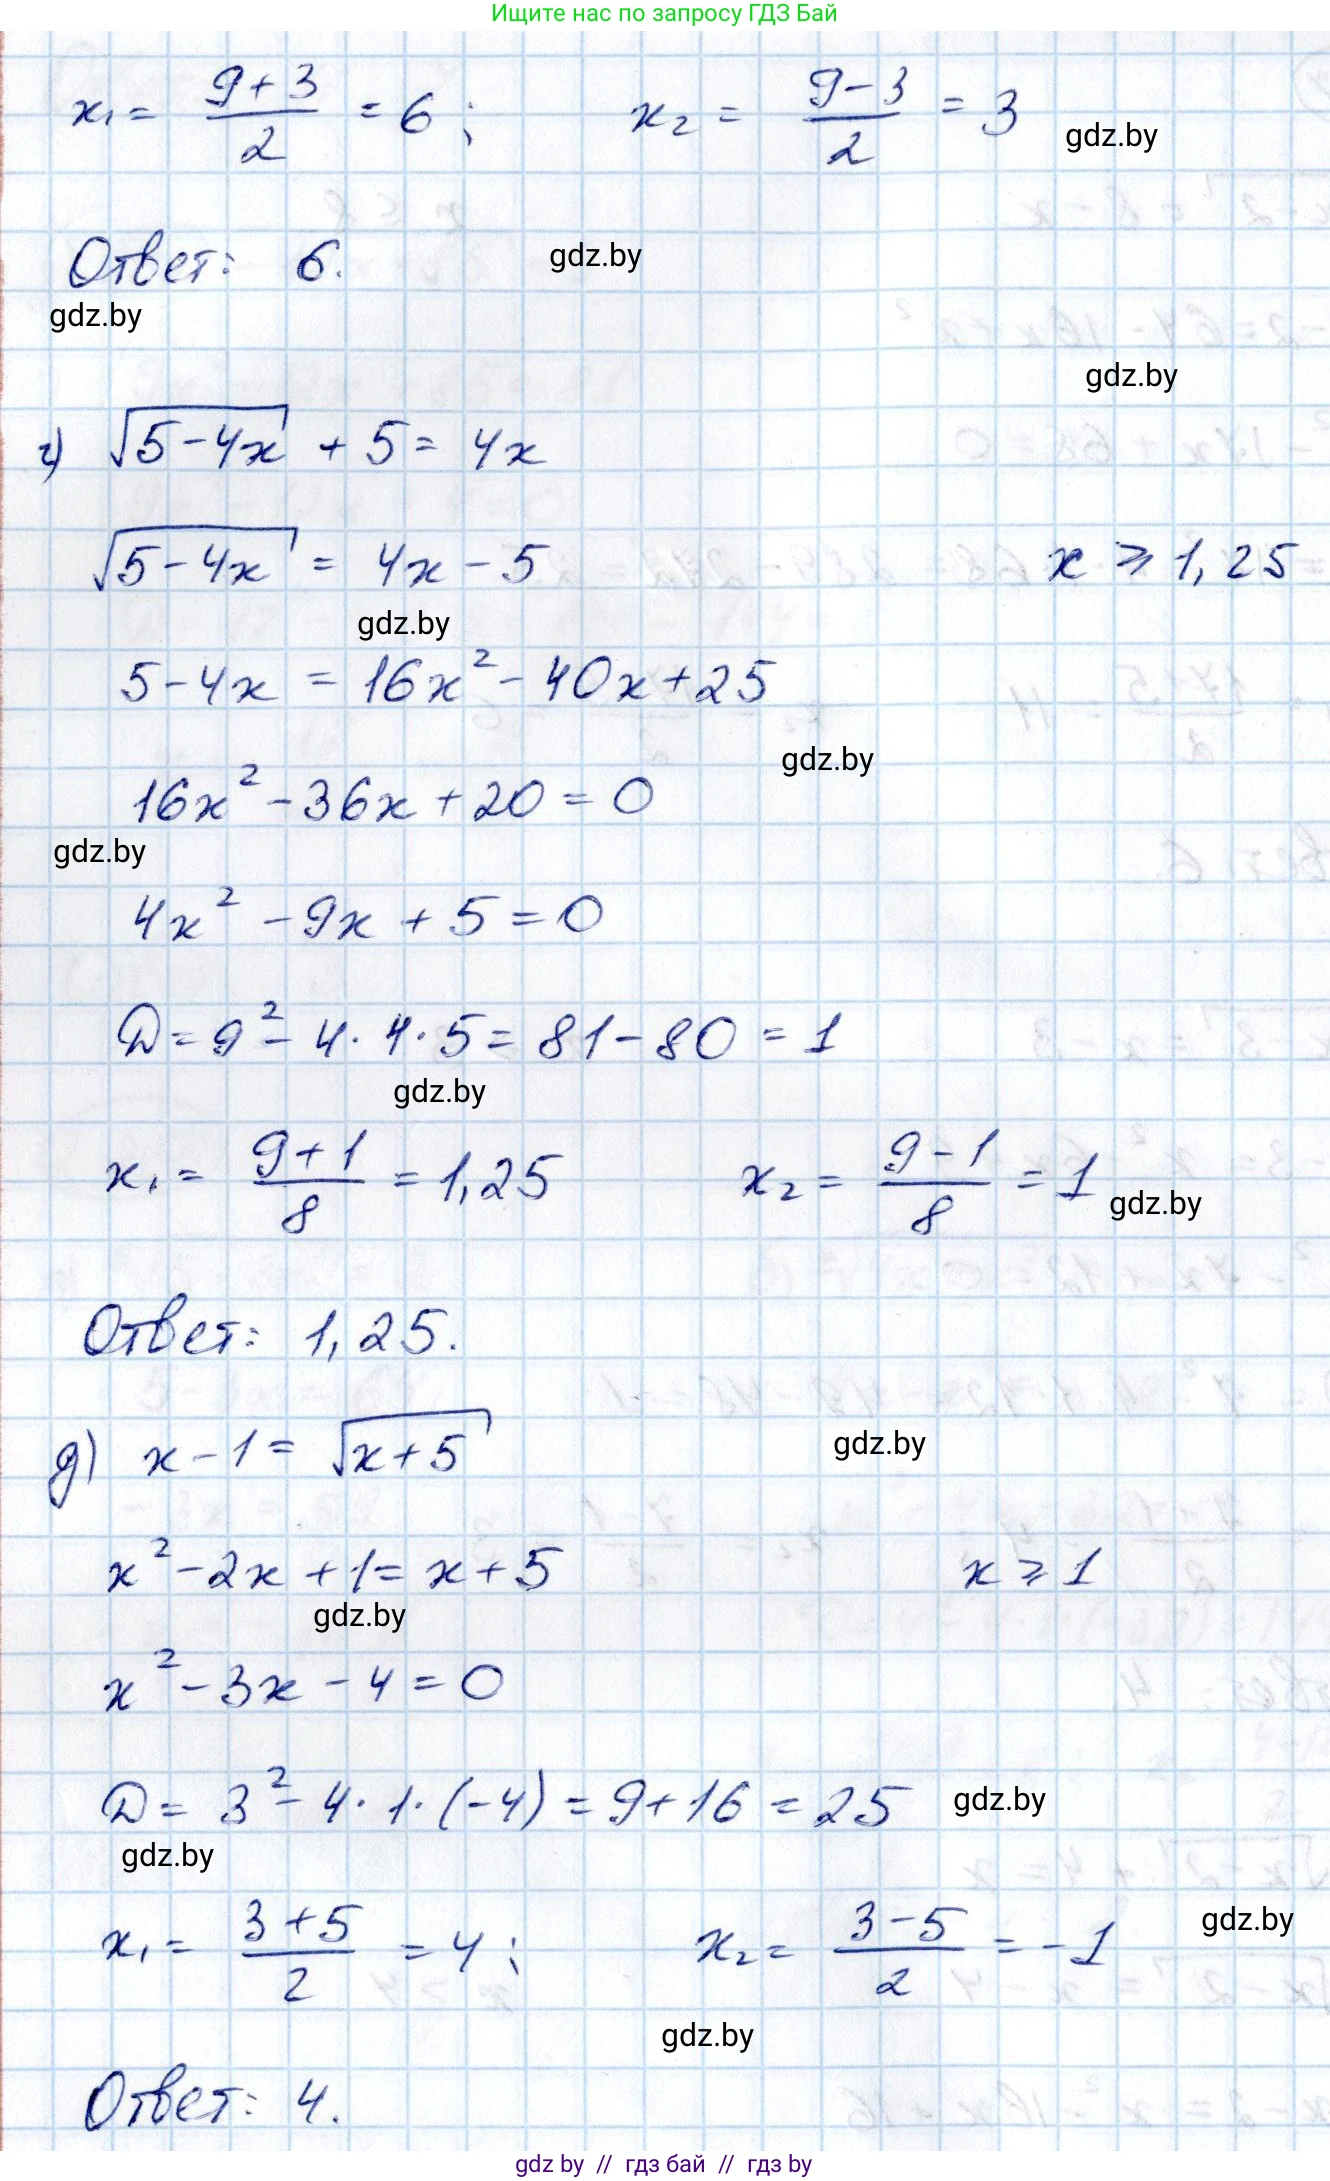 Ищите нас по запросу ГДЗ Бай
x₁ = (9+3)/2 = 6; x₂ = (9-3)/2 = 3
gdz.by
Ответ: 6.
gdz.by
gdz.by
gdz.by
г) √(5-4x) + 5 = 4x
√(5-4x) = 4x - 5 x ⩾ 1,25
gdz.by
5-4x = 16x² - 40x + 25
gdz.by
16x² - 36x + 20 = 0
gdz.by
4x² - 9x + 5 = 0
D = 9² - 4·4·5 = 81 - 80 = 1
gdz.by
x₁ = (9+1)/8 = 1,25 x₂ = (9-1)/8 = 1
gdz.by
Ответ: 1,25.
д) x - 1 = √(x+5)
gdz.by
x² - 2x + 1 = x + 5 x ⩾ 1
gdz.by
x² - 3x - 4 = 0
D = 3² - 4·1·(-4) = 9 + 16 = 25
gdz.by
gdz.by
x₁ = (3+5)/2 = 4; x₂ = (3-5)/2 = -1
gdz.by
gdz.by
Ответ: 4.
gdz by // гдз бай // гдз by